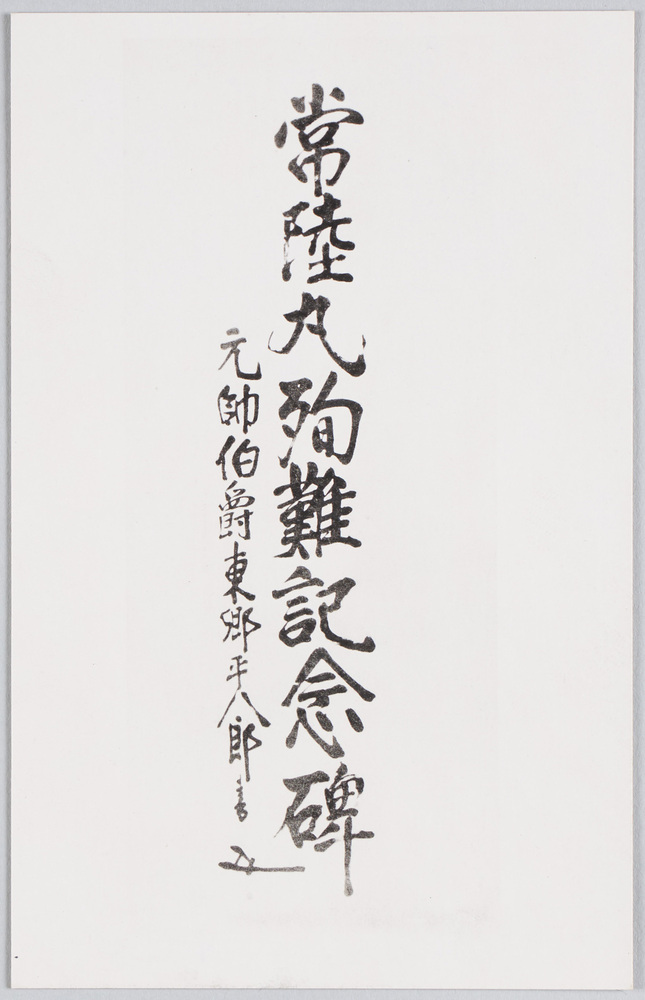 常陸丸殉難記念碑
元帥伯爵東郷平八郎書